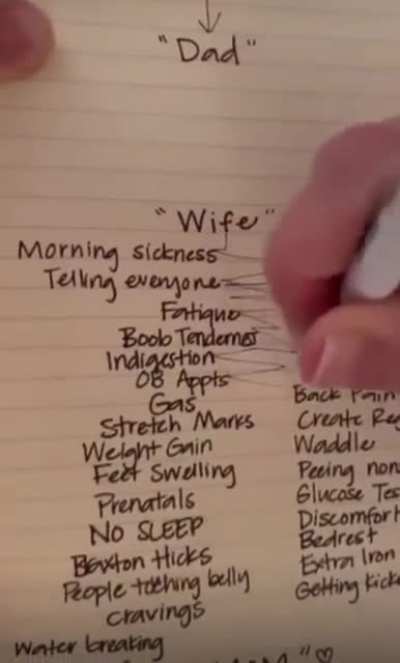 "Dad"
"Wife"
Morning sickness
Telling everyone
Fatigue
Boob Tenderness
Indigestion
OB Appts
Gas
Stretch Marks
Weight Gain
Feet Swelling
Prenatals
NO SLEEP
Braxton Hicks
People touching belly
cravings
Water breaking
Back Pain
Create Reg
Waddle
Peeing non
Glucose Tes
Discomfort
Bedrest
Extra Iron
Getting kicke
"♡